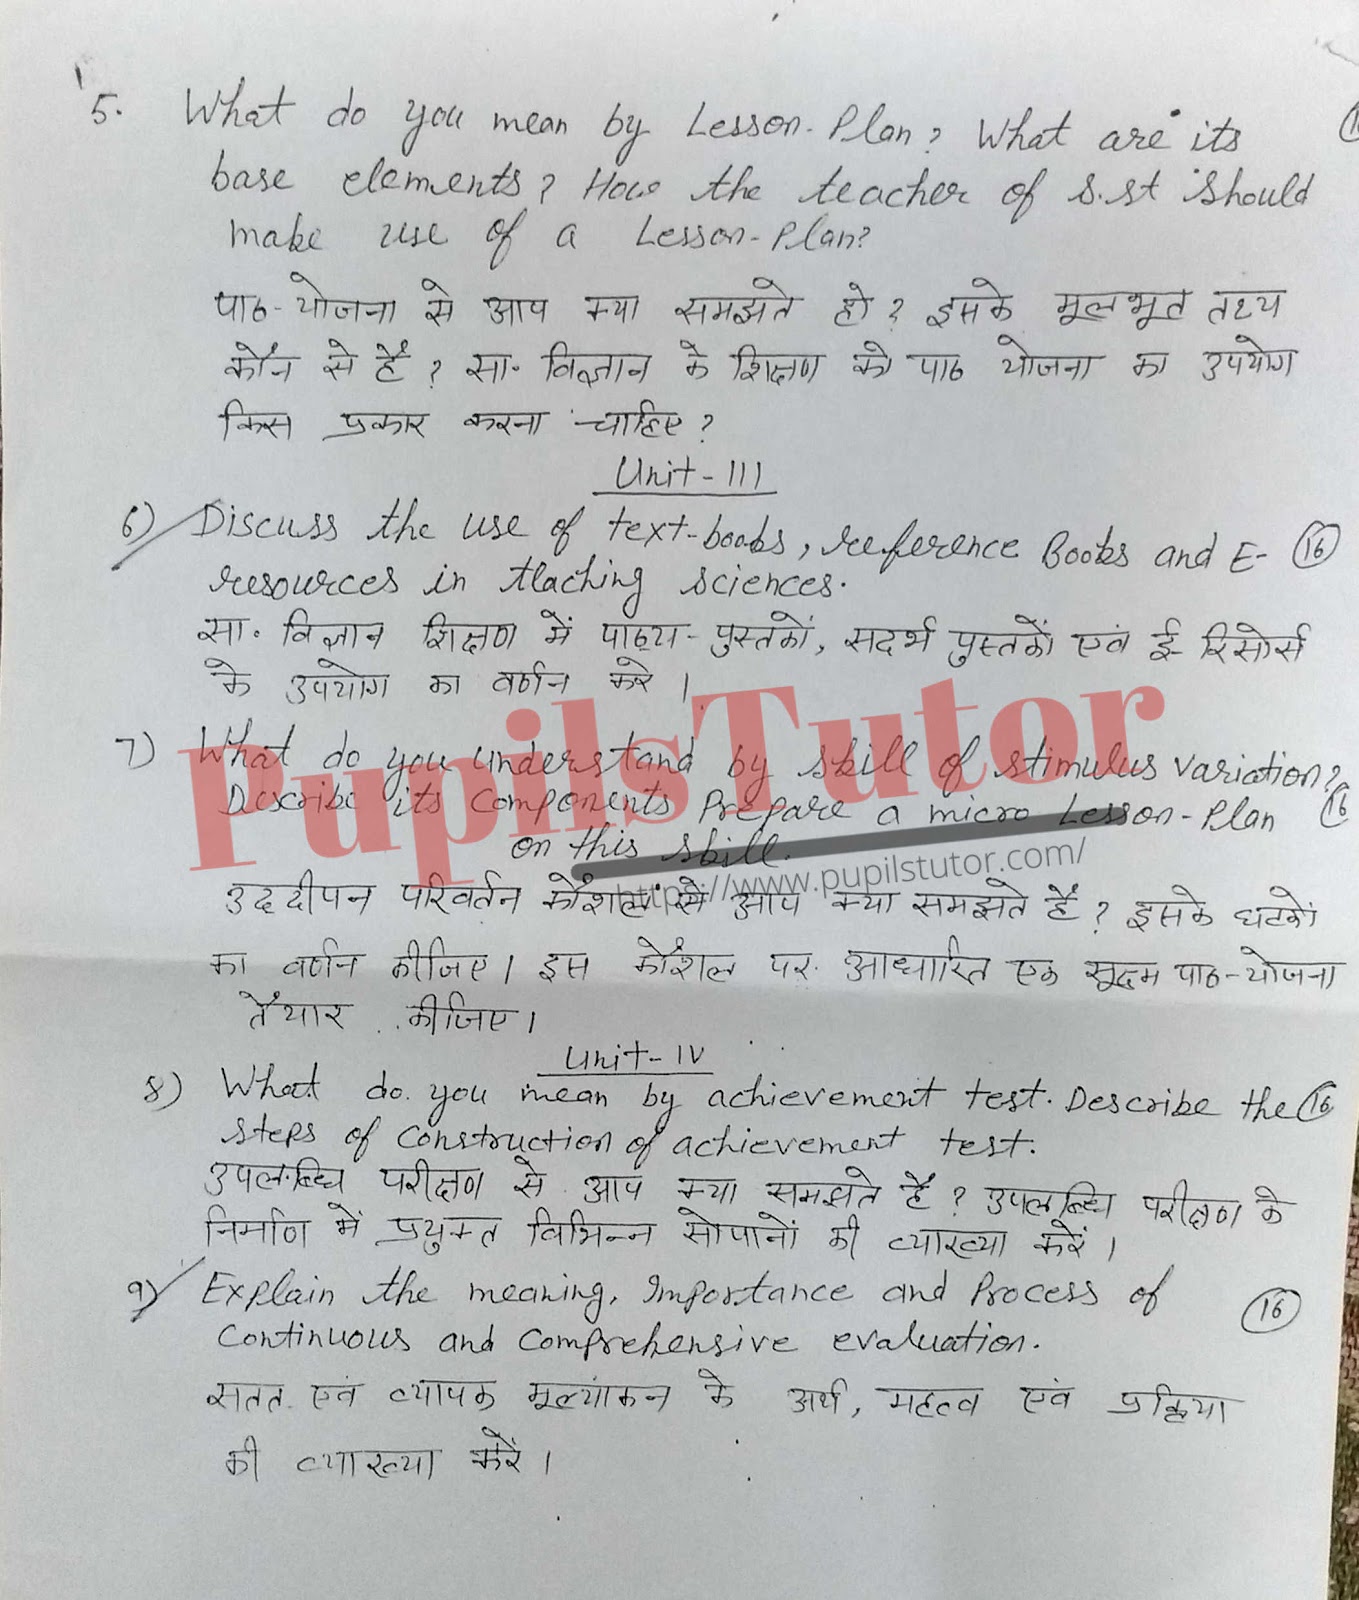 5. What do you mean by Lesson-Plan? What are its
base elements? How the teacher of s.st should
make use of a Lesson-Plan?
पाठ-योजना से आप क्या समझते हो? इसके मूलभूत तथ्य
कौन से हैं? सा. विज्ञान के शिक्षण को पाठ योजना का उपयोग
किस प्रकार करना चाहिए?
Unit-III
6) Discuss the use of text-books, reference Books and E- 16
resources in teaching sciences.
सा. विज्ञान शिक्षण में पाठ्य-पुस्तकों, सदर्भ पुस्तकों एवं ई- रिसोर्स
के उपयोग का वर्णन करे।
PupilsTutor
7) What do you understand by skill of stimulus variation?
Describe its components Prepare a micro Lesson-Plan 16
on this skill.
https://www.pupilstutor.com/
उददीपन परिवर्तन कौशल से आप क्या समझते हैं? इसके घटकों
का वर्णन कीजिए। इस कौशल पर आधारित एक सूक्ष्म पाठ-योजना
तैयार कीजिए।
Unit-IV
8) What do you mean by achievement test. Describe the 16
steps of construction of achievement test.
उपलब्धि परीक्षण से आप क्या समझते हैं? उपलब्धि परीक्षण के
निर्माण में प्रयुक्त विभिन्न सोपानों की व्याख्या करें।
9) Explain the meaning, Importance and Process of 16
continuous and comprehensive evaluation.
सतत एवं व्यापक मूल्यांकन के अर्थ, महत्व एवं प्रक्रिया
की व्याख्या करें।